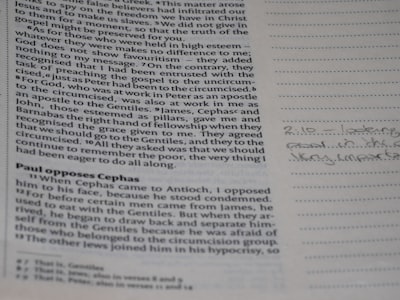 Greek. ⁴This matter arose
false believers had infiltrated our
to spy on the freedom we have in Christ
Jesus and to make us slaves. ⁵We did not give in
to them for a moment, so that the truth of the
gospel might be preserved for you.
⁶As for those who were held in high esteem –
whatever they were makes no difference to me;
God does not show favouritism – they added
nothing to my message. ⁷On the contrary, they
recognised that I had been entrusted with the
task of preaching the gospel to the uncircum-
cised,ᵃ just as Peter had been to the circumcised.ᵇ
⁸For God, who was at work in Peter as an apostle
to the circumcised, was also at work in me as
an apostle to the Gentiles. ⁹James, Cephasᶜ and
John, those esteemed as pillars, gave me and
Barnabas the right hand of fellowship when they
recognised the grace given to me. They agreed
that we should go to the Gentiles, and they to the
circumcised. ¹⁰All they asked was that we should
continue to remember the poor, the very thing I
had been eager to do all along.
Paul opposes Cephas
¹¹When Cephas came to Antioch, I opposed
him to his face, because he stood condemned.
¹²For before certain men came from James, he
used to eat with the Gentiles. But when they ar-
rived, he began to draw back and separate him-
self from the Gentiles because he was afraid of
those who belonged to the circumcision group.
¹³The other Jews joined him in his hypocrisy, so
a 7 That is, Gentiles
b 7 That is, Jews; also in verses 8 and 9
c 9 That is, Peter; also in verses 11 and 14
2:10 – looking
poor in the
very importa